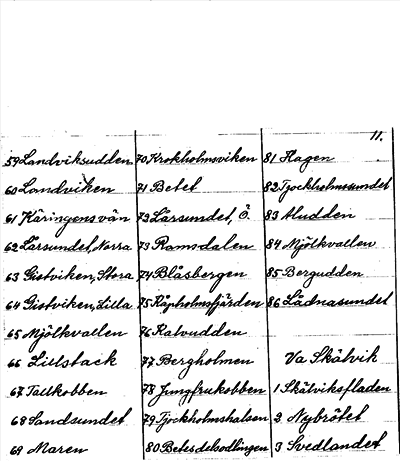 11.
59 Landviksudden
60 Landviken
61 Käringensvän
62 Larsundet, Norra
63 Gistviken, Stora
64 Gistviken, Lilla
65 Mjölkvallen
66 Lillstack
67 Tallkobben
68 Sandsundet
69 Maren
70 Krokholmsviken
71 Betet
72 Larsundet, Ö.
73 Ramsdalen
74 Blåsbergen
75 Kapholmsfjärden
76 Kalvudden
77 Bergholmen
78 Jungfrukobben
79 Tjockholmshalsen
80 Betesdelsodlingen
81 Hagen
82 Tjockholmssundet
83 Aludden
84 Mjölkvallen
85 Bergudden
86 Lådnasundet
Va Skälvik
1 Skälviksfladen
2 Nybrötet
3 Svedlandet